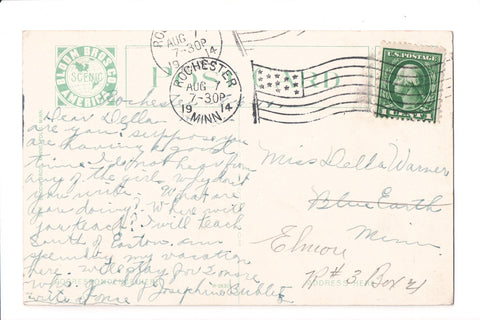 BLOOM BROS. CO.
SCENIC
AMERICA
POST CARD
ROCHESTER
MINN.
AUG 7
7-30P
1914
ROCHESTER
AUG 7
7-30P
1914
MINN.
U.S. POSTAGE
1 CENT 1
Rochester
Dear Della
are you? suppose you
are having a good
time. I do not hear from
any of the girls. Why don't
you write. What are
you doing? Where will
you teach? I will teach
South of Easton. am
spending my vacation
here. will stay for 2 more
write at once Josephine
Miss Della Warner
Blue Earth
Elmore Minn
R#3 Box 21
ADDRESS HERE